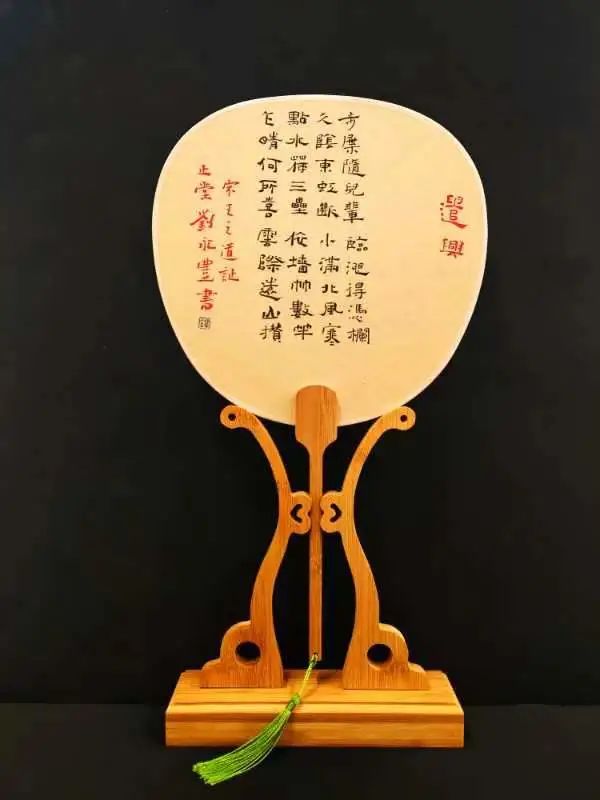 遣興
步屧隨兒輩 臨池得憑欄
久陰東虹斷 小滿北風寒
點水荷三疊 依墻竹數竿
乍晴何所喜 雲際遠山攢
宋王之道詩
止堂劉永豐書